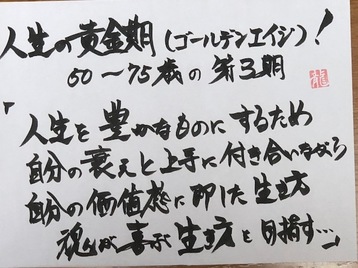 人生の黄金期(ゴールデンエイジ)!
60〜75歳の第3期
龍
「人生を豊かなものにするため
自分の衰えと上手に付き合いながら
自分の価値態に即した生き方
魂が喜ぶ生き方を目指す…」